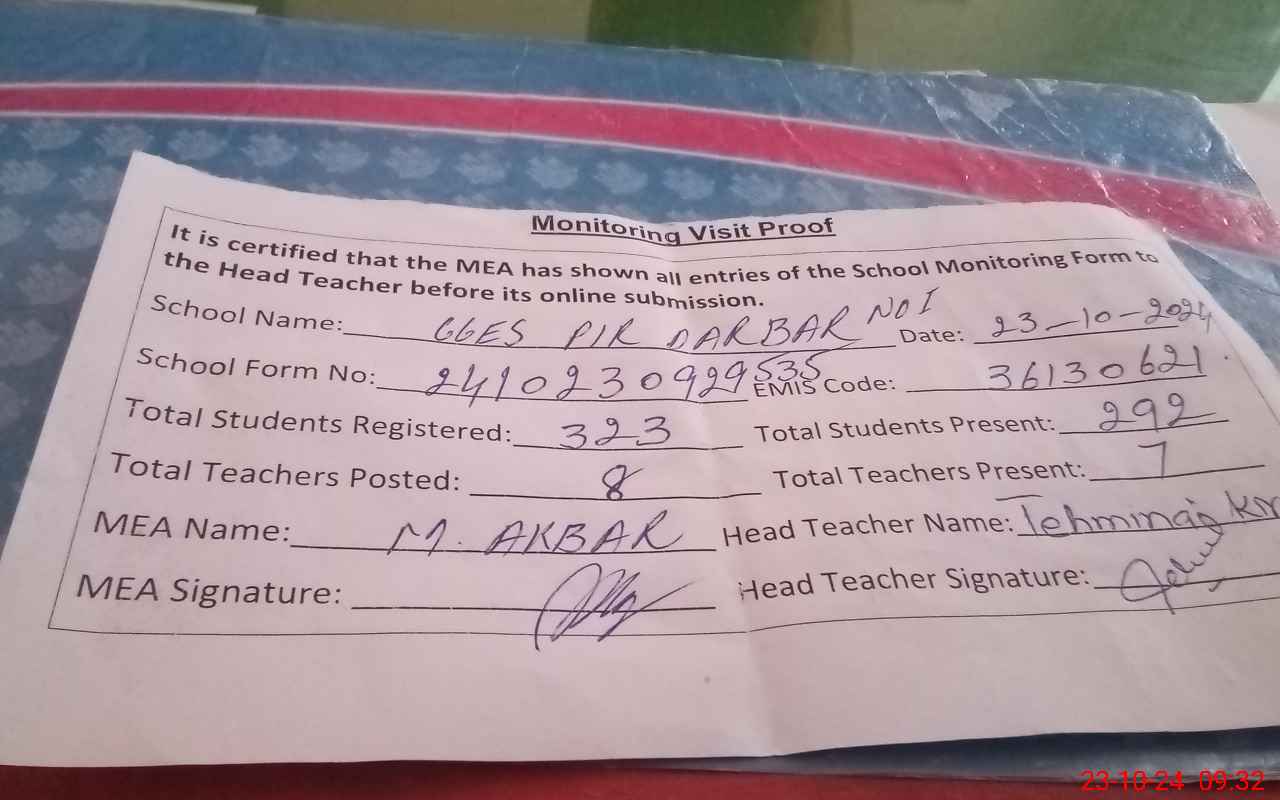 Monitoring Visit Proof
It is certified that the MEA has shown all entries of the School Monitoring Form to
the Head Teacher before its online submission.
School Name: GGES PIR DARBAR NO I Date: 23-10-2024
School Form No: 2410230929535 EMIS Code: 36130621
Total Students Registered: 323 Total Students Present: 292
Total Teachers Posted: 8 Total Teachers Present: 7
MEA Name: M. AKBAR Head Teacher Name: Tehmina
MEA Signature: Head Teacher Signature:
23-10-24 09:32